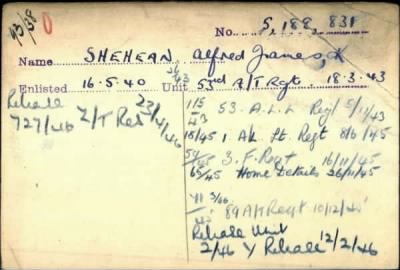 93/38 0
No. 5,188,831
Name SHEHEAN, Alfred James
Enlisted 16.5.40 Unit 53rd A/T Regt. 18.3.43
Release
727/46 Z/T Res 23/4/46
53. A.L.L Regt 5/11/43
18/45 1. Lt. Regt 8/6/45
3. F. Regt 16/11/45
65/45 Home Details 26/11/45
89 A/T Regt 10/12/45
Release Unit
2/46 Y Release 12/2/46